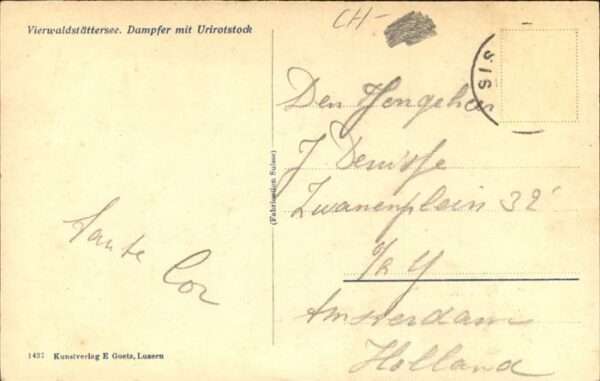 CH-
Vierwaldstättersee. Dampfer mit Urirotstock
SIS
Den
J
Zwanenplein 32
a/h Y
Amsterdam
Holland
Tante
Cor
(Fabrication Suisse)
1437 Kunstverlag E Goetz, Luzern